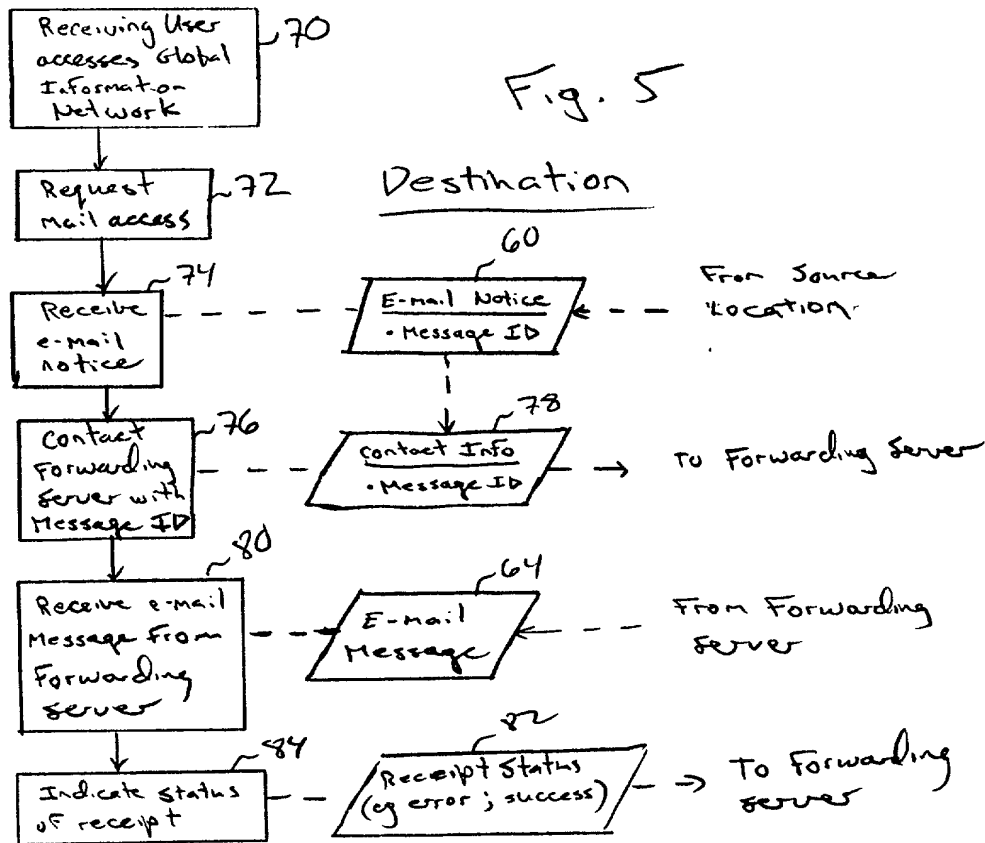 Receiving User
accesses Global
Information
Network
70
Fig. 5
Request
Mail access
72
Destination
Receive
e-mail
notice
74
60
E-mail Notice
• Message ID
From Source
Location.
Contact
Forwarding
Server with
Message ID
76
78
Contact Info
• Message ID
To Forwarding Server
80
Receive e-mail
Message From
Forwarding
Server
64
E-mail
Message
From Forwarding
Server
84
Indicate Status
of receipt
82
Receipt Status
(eg error; success)
To Forwarding
Server